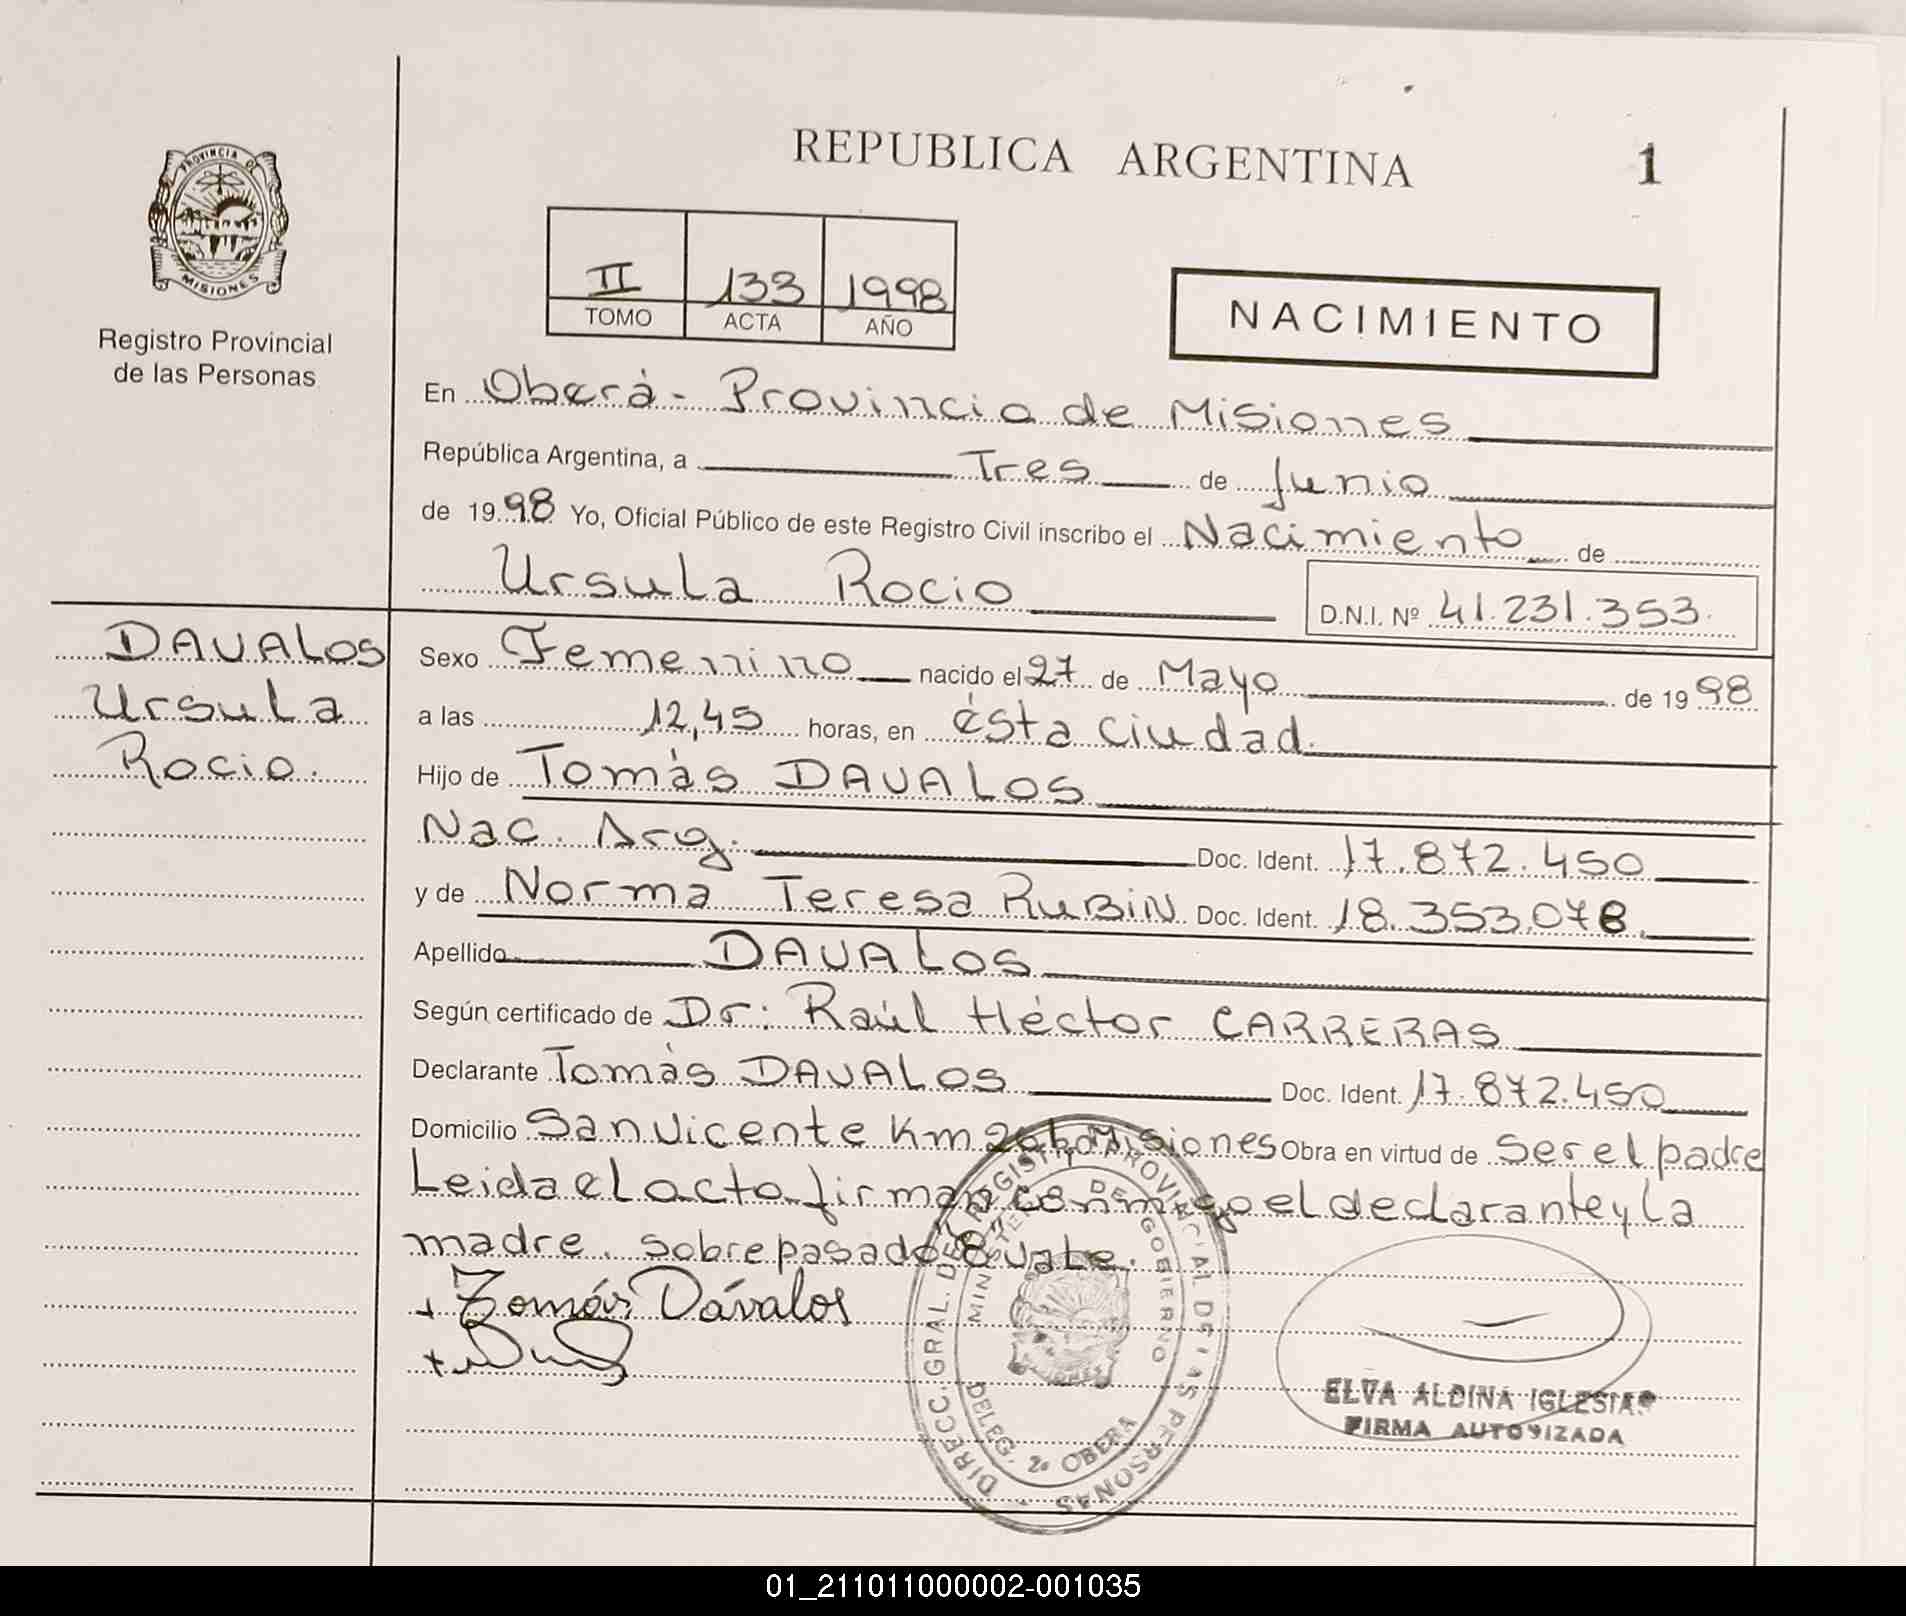 REPUBLICA ARGENTINA
1
PROVINCIA DE
MISIONES
Registro Provincial
de las Personas
II 133 1998
TOMO ACTA AÑO
NACIMIENTO
En Oberá - Provincia de Misiones
República Argentina, a Tres de Junio
de 1998 Yo, Oficial Público de este Registro Civil inscribo el Nacimiento de
Ursula Rocio
D.N.I. Nº 41.231.353.
DAVALOS
Ursula
Rocio.
Sexo Femenino nacido el 27 de Mayo de 1998
a las 12,45 horas, en ésta ciudad.
Hijo de Tomás DAVALOS
Nac. Arg. Doc. Ident. 17.872.450
y de Norma Teresa RUBIN Doc. Ident. 18.353.078.
Apellido DAVALOS
Según certificado de Dr: Raúl Héctor CARRERAS
Declarante Tomás DAVALOS Doc. Ident. 17.872.450
Domicilio San Vicente Km Misiones Obra en virtud de ser el padre
Leida el acta firman conmigo el declarante y la
madre. sobrepasado "8" vale.
+ Tomás Dávalos
DIRECC. GRAL. DEL REGISTRO PROVINCIAL DE LAS PERSONAS
MINISTERIO DE GOBIERNO
DELEG. 2º OBERA
ELVA ALDINA IGLESIAS
FIRMA AUTORIZADA
01_211011000002-001035